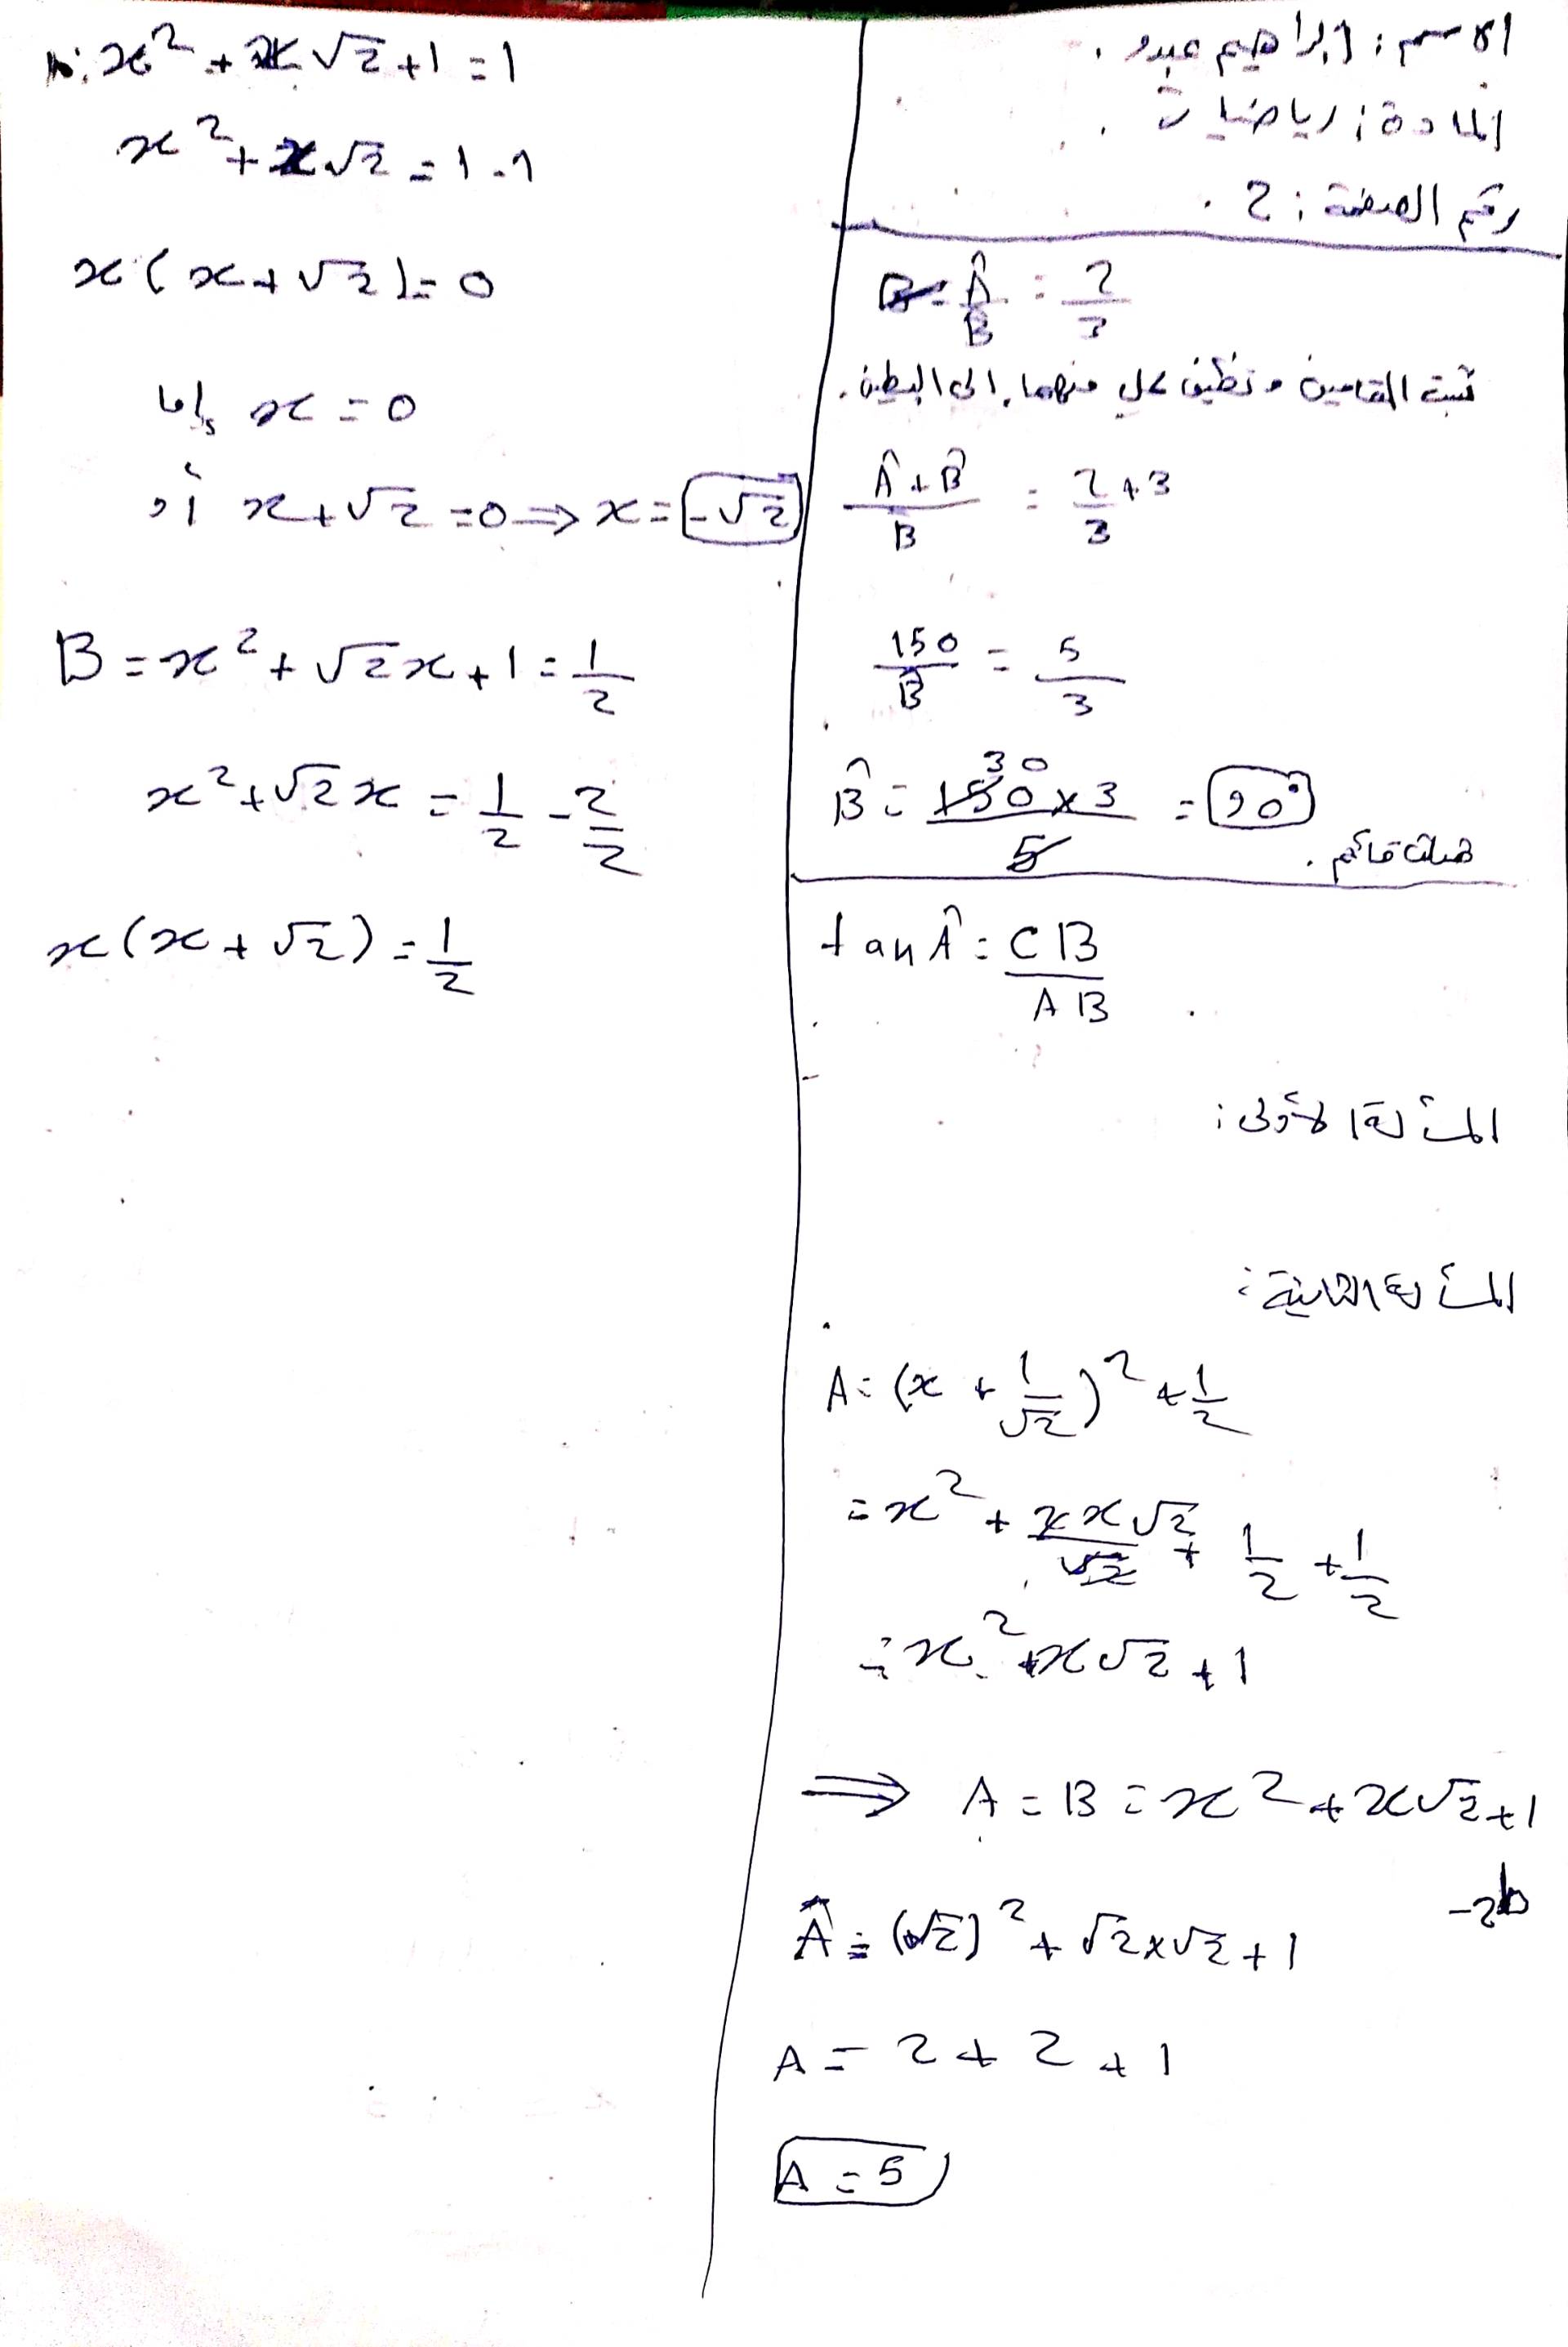 الاسم : إبراهيم عبدو .
المادة : رياضيات .
رقم الصفحة : 2 .
Â/B = 2/3
نثبت المقامين ونضيف كل منهما إلى البسط .
Â + B̂ / B = 2 + 3 / 3
150 / B̂ = 5 / 3
B̂ = 150 × 3 / 5 = 90°
30
قائم .
tan Â = CB / AB
المسألة الأولى :
المسألة الثانية :
A = (x + 1/√2)² + 1/2
= x² + 2x√2 / √2 + 1/2 + 1/2
= x² + x√2 + 1
⇒ A = B = x² + x√2 + 1
Â = (√2)² + √2 × √2 + 1
A = 2 + 2 + 1
A = 5
x² + x√2 + 1 = 1
x² + x√2 = 1 - 1
x ( x + √2 ) = 0
إما x = 0
أو x + √2 = 0 ⇒ x = -√2
B = x² + √2 x + 1 = 1/2
x² + √2 x = 1/2 - 2/2
x ( x + √2 ) = 1/2